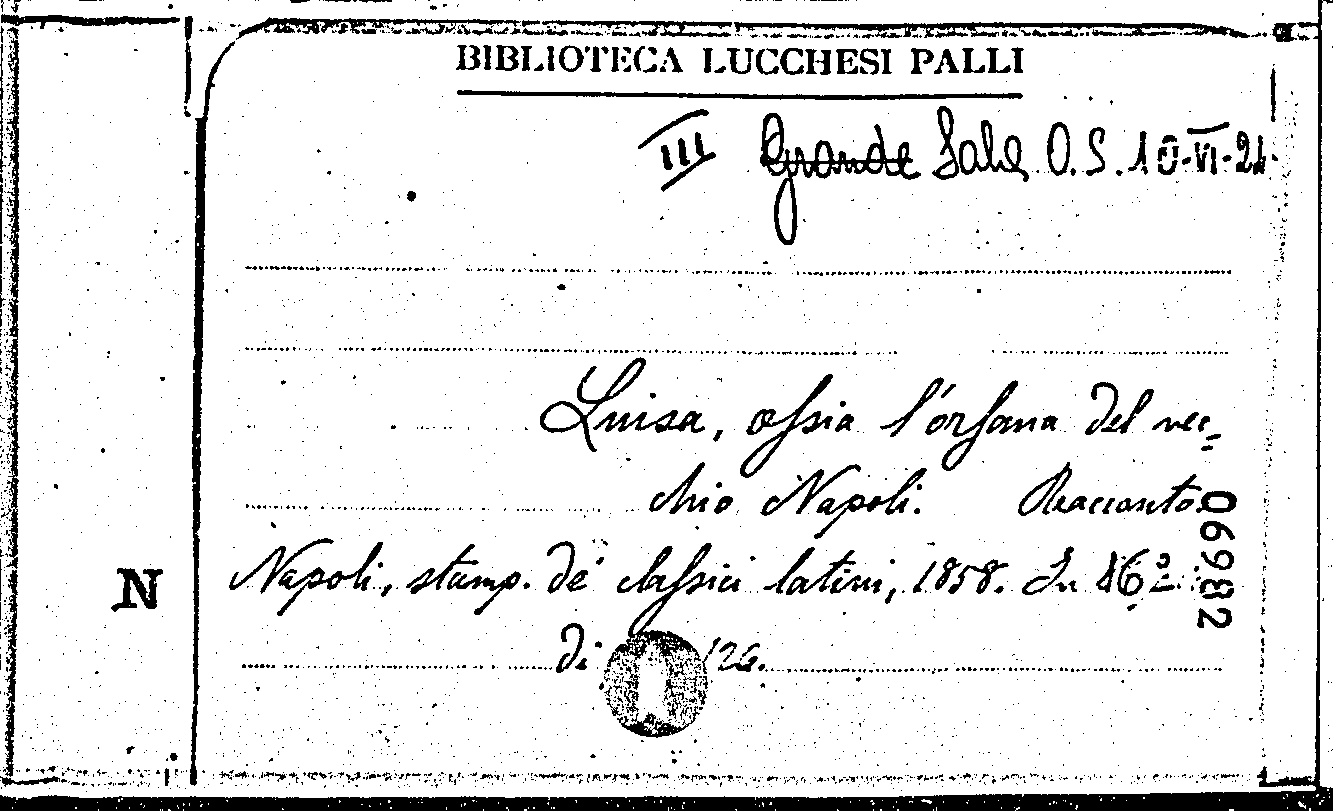 BIBLIOTECA LUCCHESI PALLI
III Grande Sala O.S. 10-VI-21.
Luisa, ossia l'orfana del vec=
chio Napoli. Racconto
Napoli, stamp. de' classici latini, 1858. In 16º
di 126.
06982
N